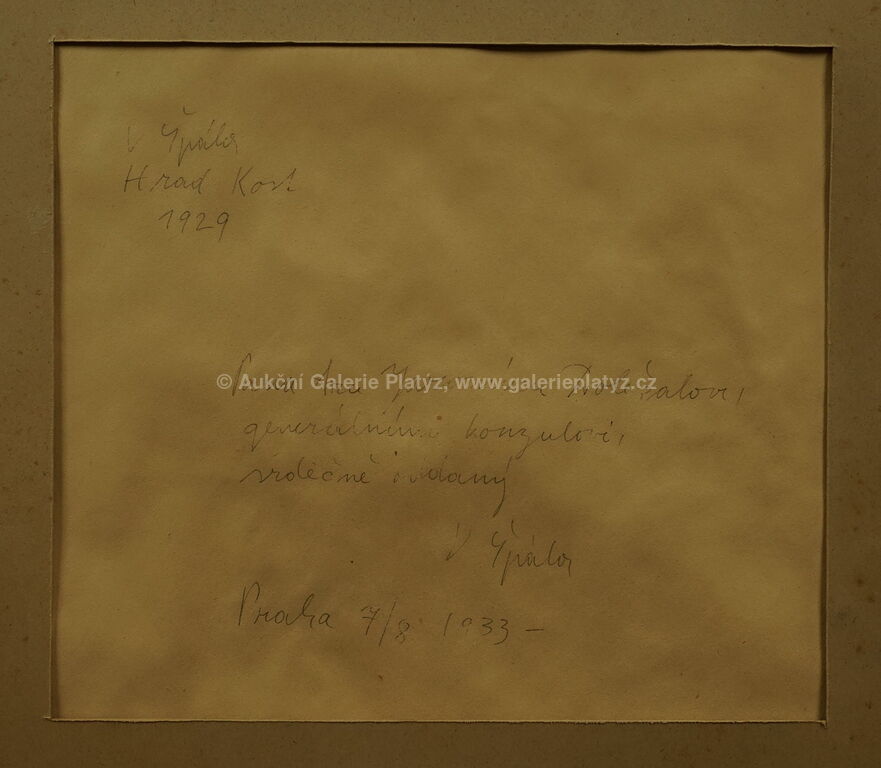 V Špála
Hrad Kost
1929
© Aukční Galerie Platýz, www.galerieplatyz.cz
Doležalovi,
generálnímu konzulovi,
srdečně oddaný
V Špála
Praha 7/8 1933 –